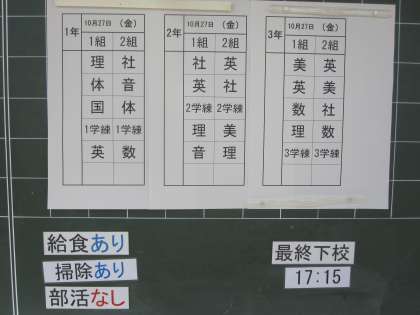 1年 10月27日 (金)
1組 2組
理 社
体 音
国 体
1学練 1学練
英 数
2年 10月27日 (金)
1組 2組
社 英
英 社
2学練 2学練
理 美
音 理
3年 10月27日 (金)
1組 2組
美 英
英 美
数 社
理 数
3学練 3学練
給食あり
掃除あり
部活なし
最終下校
17:15